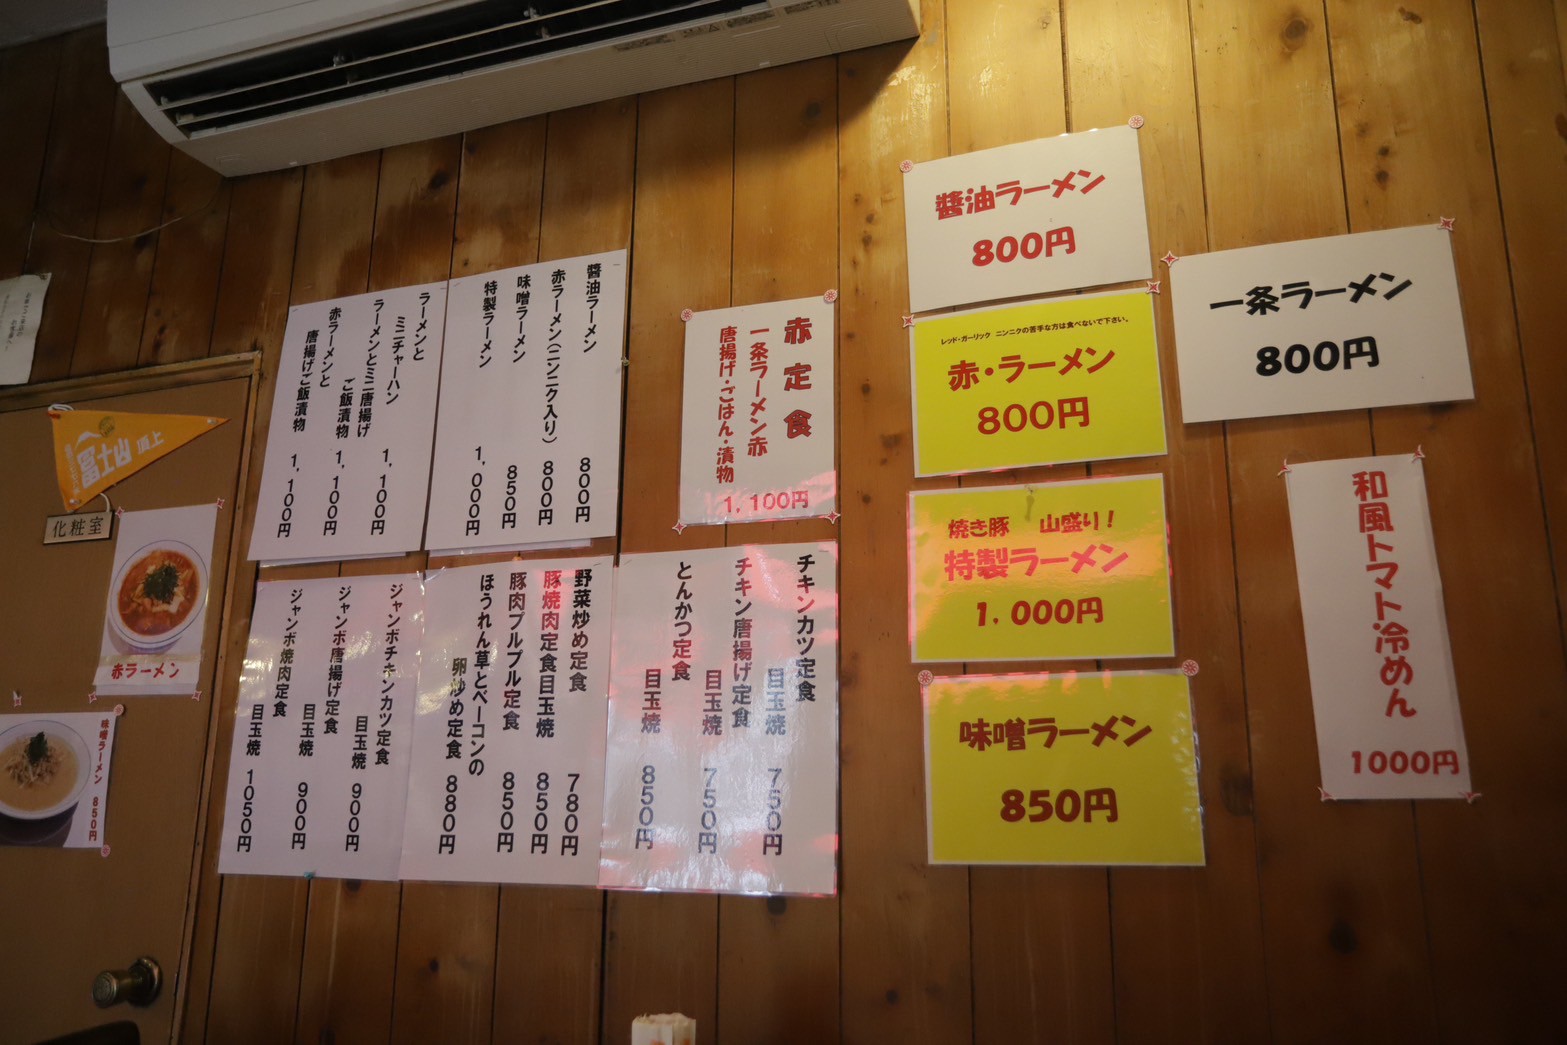 醤油ラーメン
800円
レッド・ガーリック ニンニクの苦手な方は食べないで下さい。
赤・ラーメン
800円
焼き豚 山盛り!
特製ラーメン
1.000円
味噌ラーメン
850円
一条ラーメン
800円
和風トマト冷めん
1000円
赤定食
一条ラーメン赤
唐揚げ・ごはん・漬物
1,100円
醤油ラーメン 800円
赤ラーメン(ニンニク入り) 800円
味噌ラーメン 850円
特製ラーメン 1,000円
ラーメンと
ミニチャーハン 1,100円
ラーメンとミニ唐揚げ
ご飯漬物 1,100円
赤ラーメンと
唐揚げご飯漬物 1,100円
チキンカツ定食
目玉焼 750円
チキン唐揚げ定食
目玉焼 750円
とんかつ定食
目玉焼 850円
野菜炒め定食 780円
豚焼肉定食目玉焼 850円
豚肉プルプル定食 850円
ほうれん草とベーコンの
卵炒め定食 880円
ジャンボチキンカツ定食
目玉焼 900円
ジャンボ唐揚げ定食
目玉焼 900円
ジャンボ焼肉定食
目玉焼 1050円
富士山 頂上
化粧室
赤ラーメン
味噌ラーメン 850円